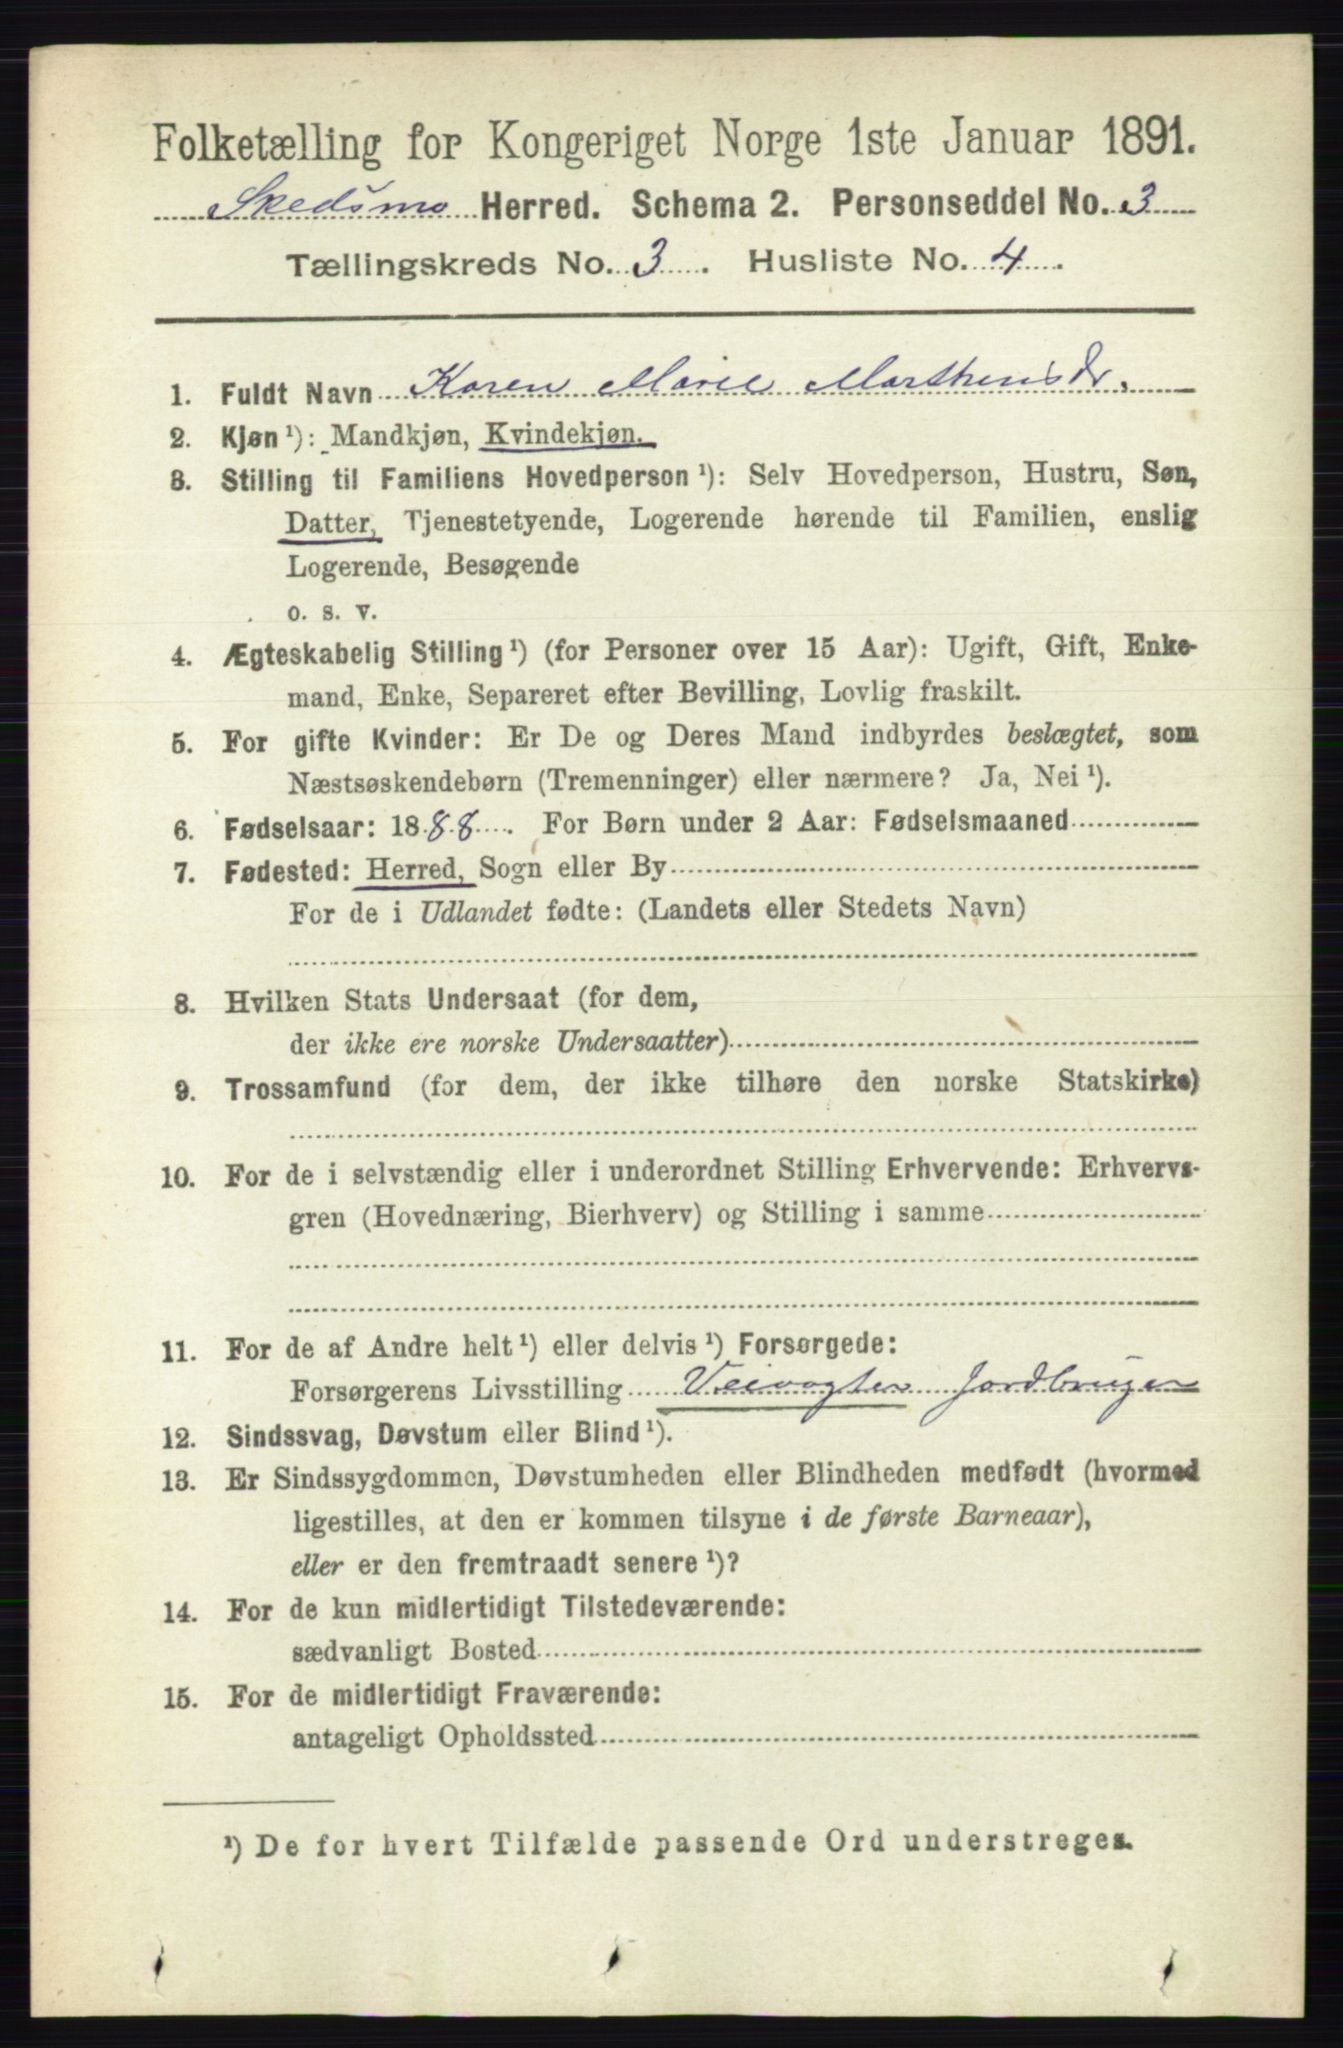 Folketælling for Kongeriget Norge 1ste Januar 1891.
Skedsmo Herred. Schema 2. Personseddel No. 3
Tællingskreds No. 3. Husliste No. 4.
1. Fuldt Navn Karen Marie Marthinsdr.
2. Kjøn ¹): Mandkjøn, Kvindekjøn.
3. Stilling til Familiens Hovedperson ¹): Selv Hovedperson, Hustru, Søn,
Datter, Tjenestetyende, Logerende hørende til Familien, enslig
Logerende, Besøgende
o. s. v.
4. Ægteskabelig Stilling ¹) (for Personer over 15 Aar): Ugift, Gift, Enke-
mand, Enke, Separeret efter Bevilling, Lovlig fraskilt.
5. For gifte Kvinder: Er De og Deres Mand indbyrdes beslægtet, som
Næstsøskendebørn (Tremenninger) eller nærmere? Ja, Nei ¹).
6. Fødselsaar: 1888. For Børn under 2 Aar: Fødselsmaaned
7. Fødested: Herred, Sogn eller By
For de i Udlandet fødte: (Landets eller Stedets Navn)
8. Hvilken Stats Undersaat (for dem,
der ikke ere norske Undersaatter)
9. Trossamfund (for dem, der ikke tilhøre den norske Statskirke)
10. For de i selvstændig eller i underordnet Stilling Erhvervende: Erhvervs-
gren (Hovednæring, Bierhverv) og Stilling i samme
11. For de af Andre helt ¹) eller delvis ¹) Forsørgede:
Forsørgerens Livsstilling Veivogter Jordbruger
12. Sindssvag, Døvstum eller Blind ¹).
13. Er Sindssygdommen, Døvstumheden eller Blindheden medfødt (hvormed
ligestilles, at den er kommen tilsyne i de første Barneaar),
eller er den fremtraadt senere ¹)?
14. For de kun midlertidigt Tilstedeværende:
sædvanligt Bosted
15. For de midlertidigt Fraværende:
antageligt Opholdssted
¹) De for hvert Tilfælde passende Ord understreges.